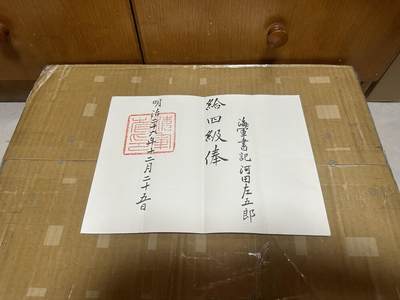 海軍書記 河田左五郎
給四級俸
明治二十六年十二月二十五日